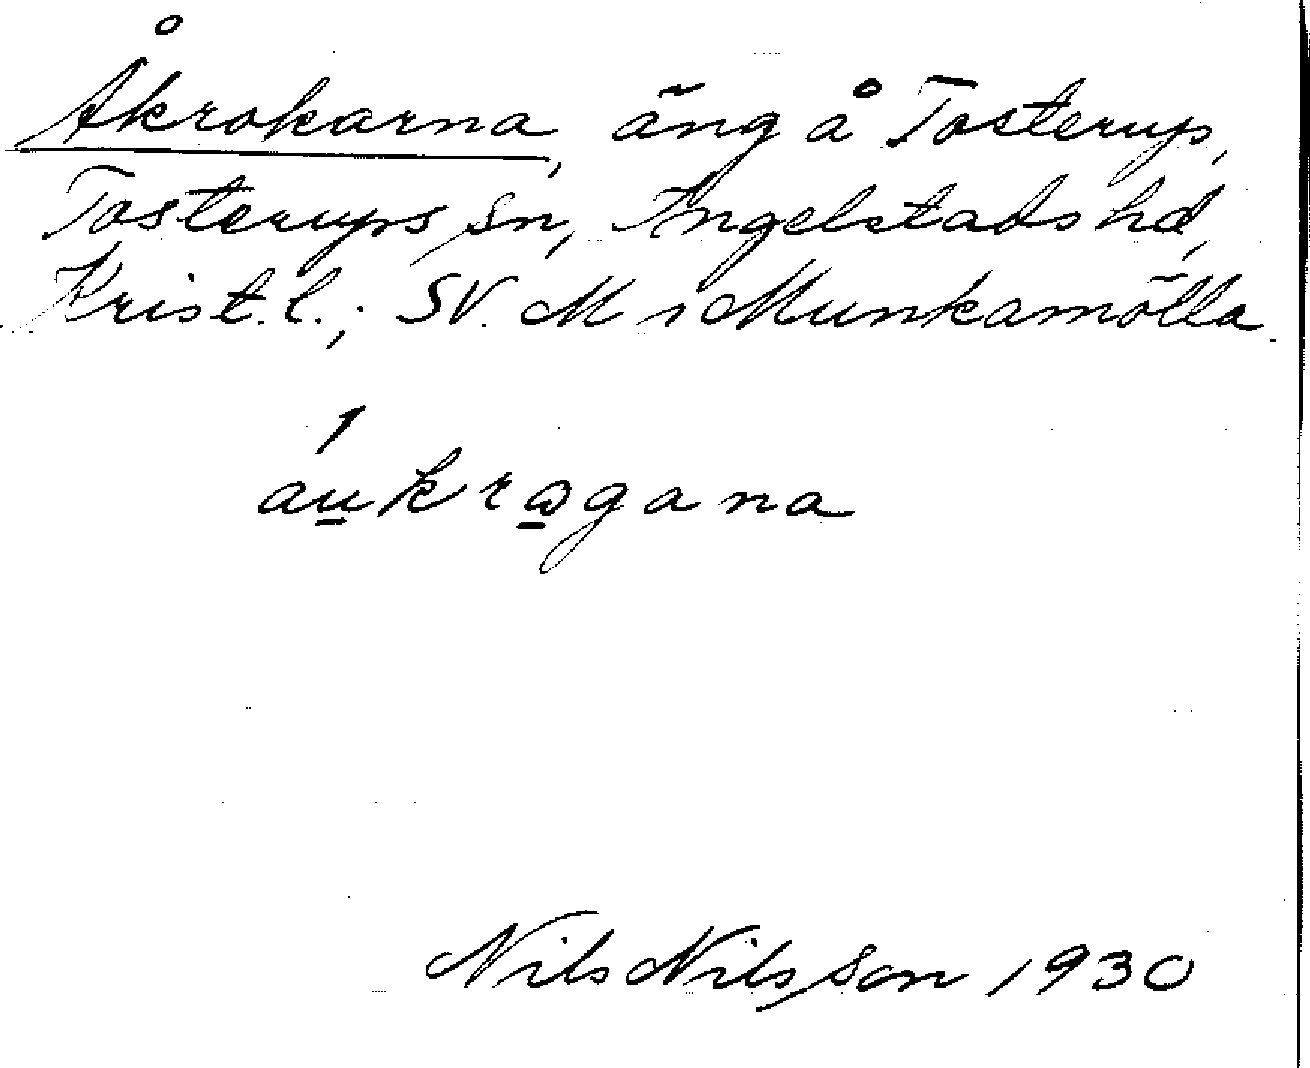 Åkrokarna, äng å Tosterup,
Tosterups sn, Ingelstads hd,
Krist.l.; SV. M i Munkamölla.
áu̱kro̱gana
Nils Nilsson 1930